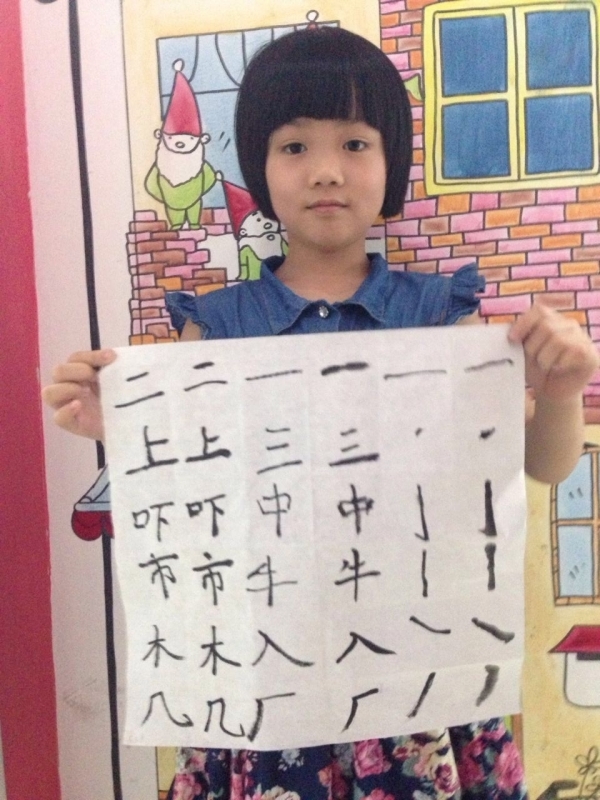 二 二 一 一 一 一
上 上 三 三 丶 丶
吓 吓 中 中 丨 丨
市 市 牛 牛 丨 丨
木 木 入 入 ㇏ ㇏
几 几 厂 厂 丿 丿